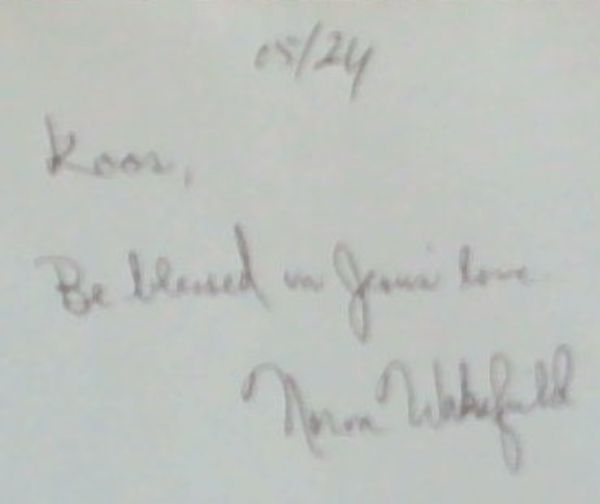 05/24
Koos,
Be blessed in Jesus' love
Wakefield